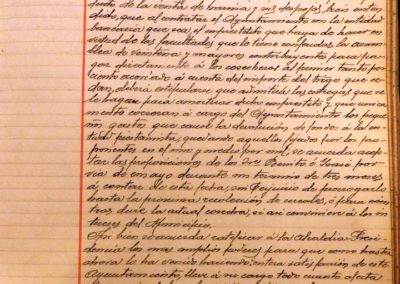 ducto de la venta de harina y sus despojos, bien enten-
dido, que al contratar el Ayuntamiento con la entidad
bancaria que sea, el empréstito que haya de hacer en
virtud de las facultades que le tiene conferidas la asam-
blea de vecinos y mayores contribuyentes para pa-
gar directamente á los cosecheros el primer tanto por
ciento acordado á cuenta del importe del trigo que ve
dan, deberá estipularse que admitida las entregas que se
le hagan para amortizar dicho empréstito y que unica-
mente correrán á cargo del Ayuntamiento los peque
ños gastos que cause la devolución de fondos á la enti
dad prestamista, quedando aquellos fijados por los pro
ponentes en el uno y medio por mil, se acuerda acep-
tar las proposiciones de los Sres. Benito é José por
vía de ensayo durante un término de tres meses
á contar de esta fecha, sin perjuicio de prorrogarlo
hasta la próxima recolección de cereales, ó para mien-
tras dure la actual cosecha, si así conviniere á los in
tereses del Municipio.
Así bien se acuerda ratificar á la Alcaldía Presi-
dencia los mas amplios poderes para que como hasta
ahora lo ha venido haciendo, á entera satisfacción de este
Ayuntamiento, lleve á su cargo todo cuanto afecta